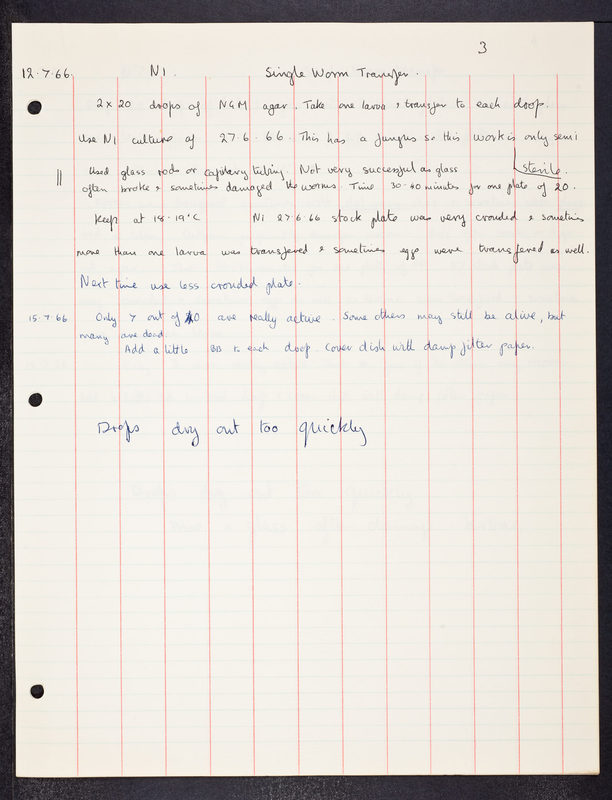 3
12.7.66. N1. Single Worm Transfer.
2 x 20 drops of NGM agar. Take one larva & transfer to each drop.
Use N1 culture of 27.6.66. This has a fungus so this work is only semi
sterile.
|| Used glass rods or capillary tubing. Not very successful as glass
often broke & sometimes damaged the worms. Time 30-40 minutes for one plate of 20.
Keep at 18-19°C N1 27.6.66 stock plate was very crouded & sometimes
more than one larva was transfered & sometimes eggs were transfered as well.
Next time use less crouded plate.
15.7.66 Only 7 out of 40 are really active. Some others may still be alive, but
many are dead.
Add a little BB to each drop. Cover dish with damp filter paper.
Drops dry out too quickly